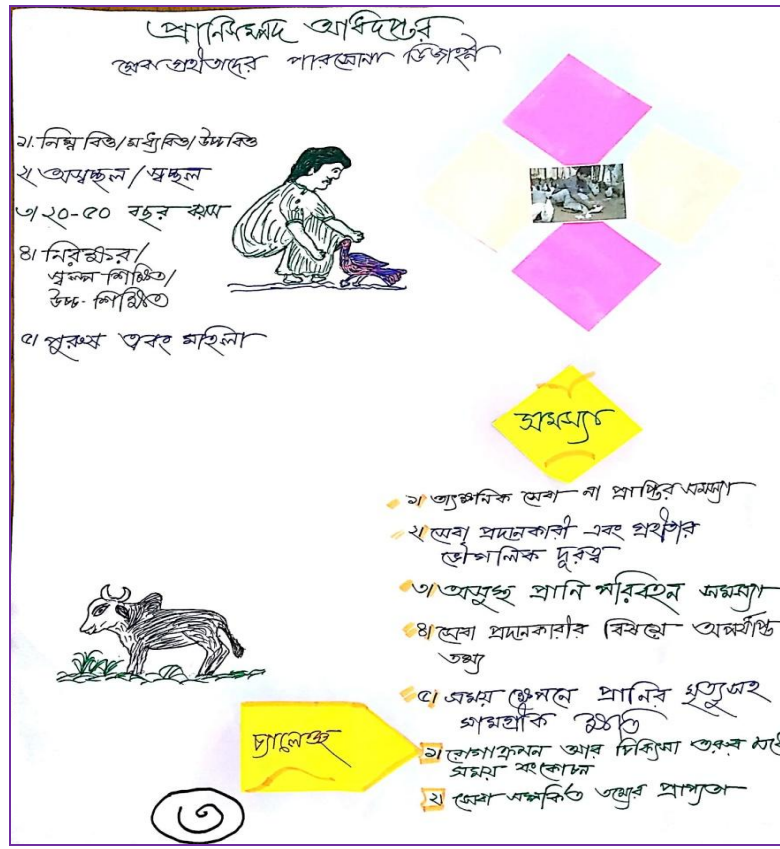 প্রাণিসম্পদ অধিদপ্তর
সেবাগ্রহীতাদের পারসোনা ডিজাইন
১। নিম্নবিত্ত/মধ্যবিত্ত/উচ্চবিত্ত
২। অস্বচ্ছল/স্বচ্ছল
৩। ২০-৫০ বছর বয়স
৪। নিরক্ষর/
স্বল্প শিক্ষিত/
উচ্চ-শিক্ষিত
৫। পুরুষ এবং মহিলা
সমস্যা
১। তাৎক্ষনিক সেবা না প্রাপ্তির সমস্যা
২। সেবা প্রদানকারী এবং গ্রহীতার
ভৌগলিক দূরত্ব
৩। অসুস্থ প্রানি পরিবহন সমস্যা
৪। সেবা প্রদানকারীর বিষয়ে অপর্যাপ্ত
তথ্য
৫। সময় ক্ষেপনে প্রানির মৃত্যুসহ
সামগ্রীক ক্ষতি
চ্যালেঞ্জ
১। রোগাক্রমন আর চিকিৎসা শুরুর মধ্যে
সময় সংকোচন
২। সেবা সম্পর্কিত তথ্যের প্রাপ্যতা
৩